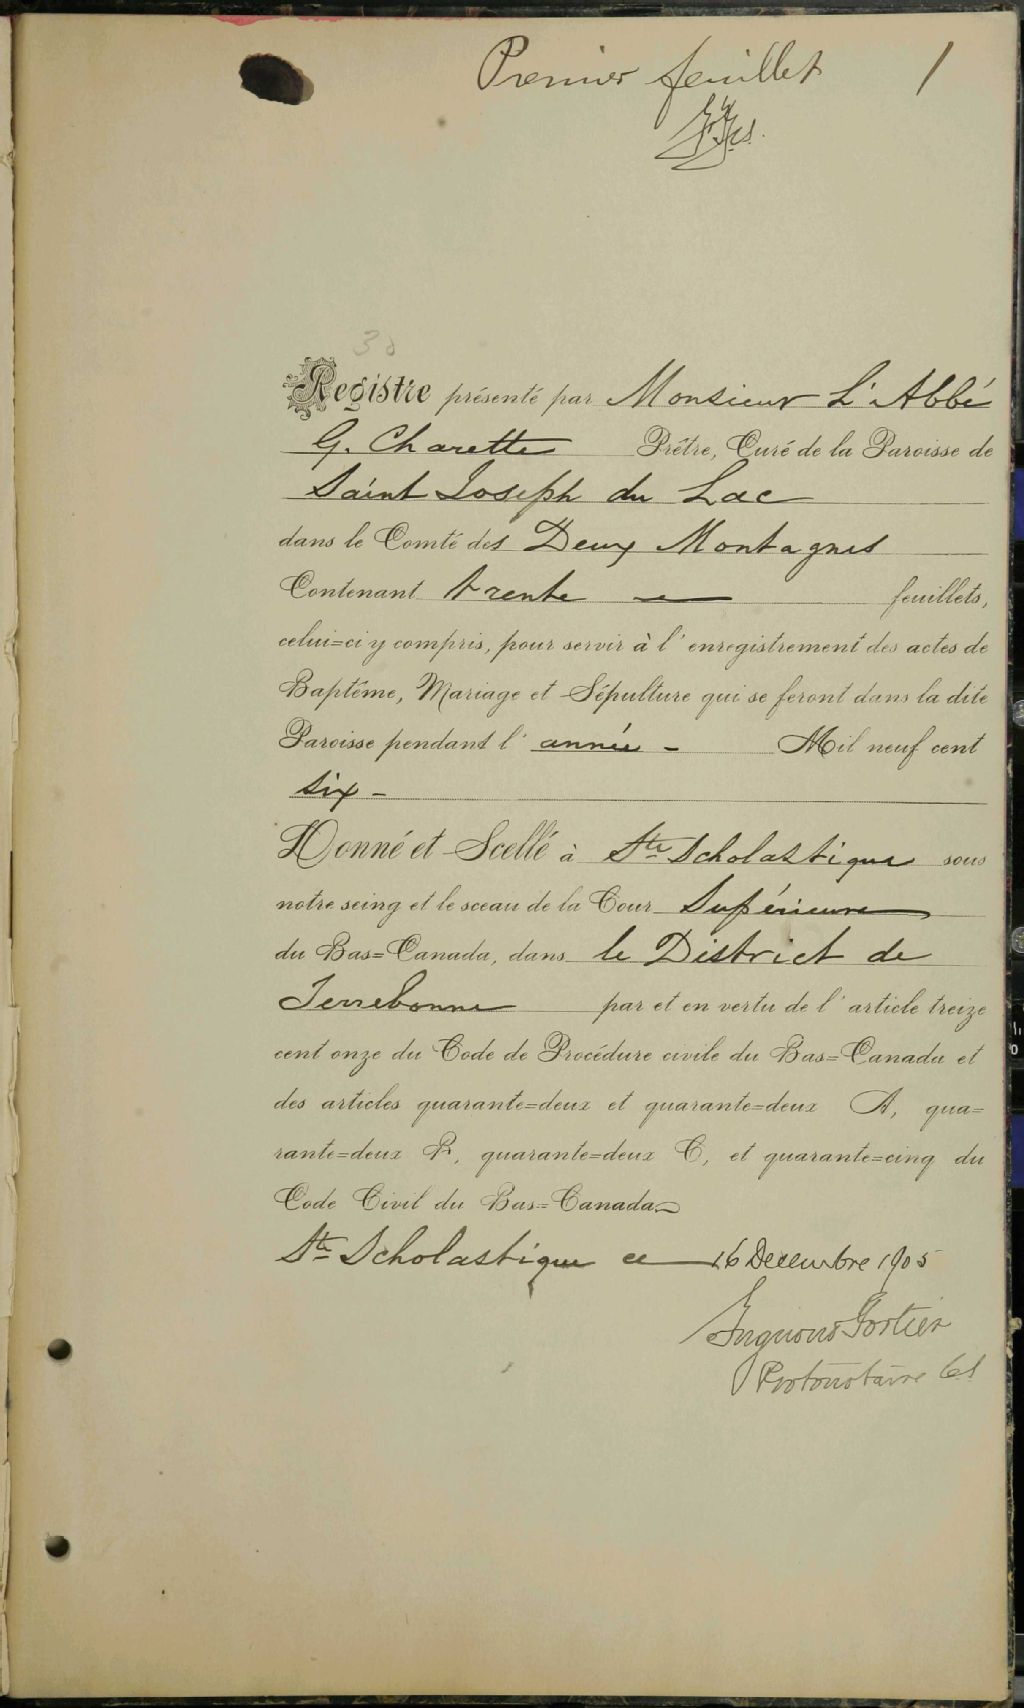 Premier feuillet 1
30
Registre présenté par Monsieur L'Abbé
G. Charette Prêtre, Curé de la Paroisse de
Saint Joseph du Lac
dans le Comté des Deux Montagnes
Contenant trente feuillets,
celui=ci y compris, pour servir à l'enregistrement des actes de
Baptême, Mariage et Sépulture qui se feront dans la dite
Paroisse pendant l'année - Mil neuf cent
six -
Donné et Scellé à Ste Scholastique sous
notre seing et le sceau de la Cour Supérieure
du Bas=Canada, dans le District de
Terrebonne par et en vertu de l'article treize
cent onze du Code de Procédure civile du Bas=Canada et
des articles quarante=deux et quarante=deux A, qua=
rante=deux B, quarante=deux C, et quarante=cinq du
Code Civil du Bas=Canada
Ste Scholastique ce 16 Decembre 1905
Fortier
Protonotaire